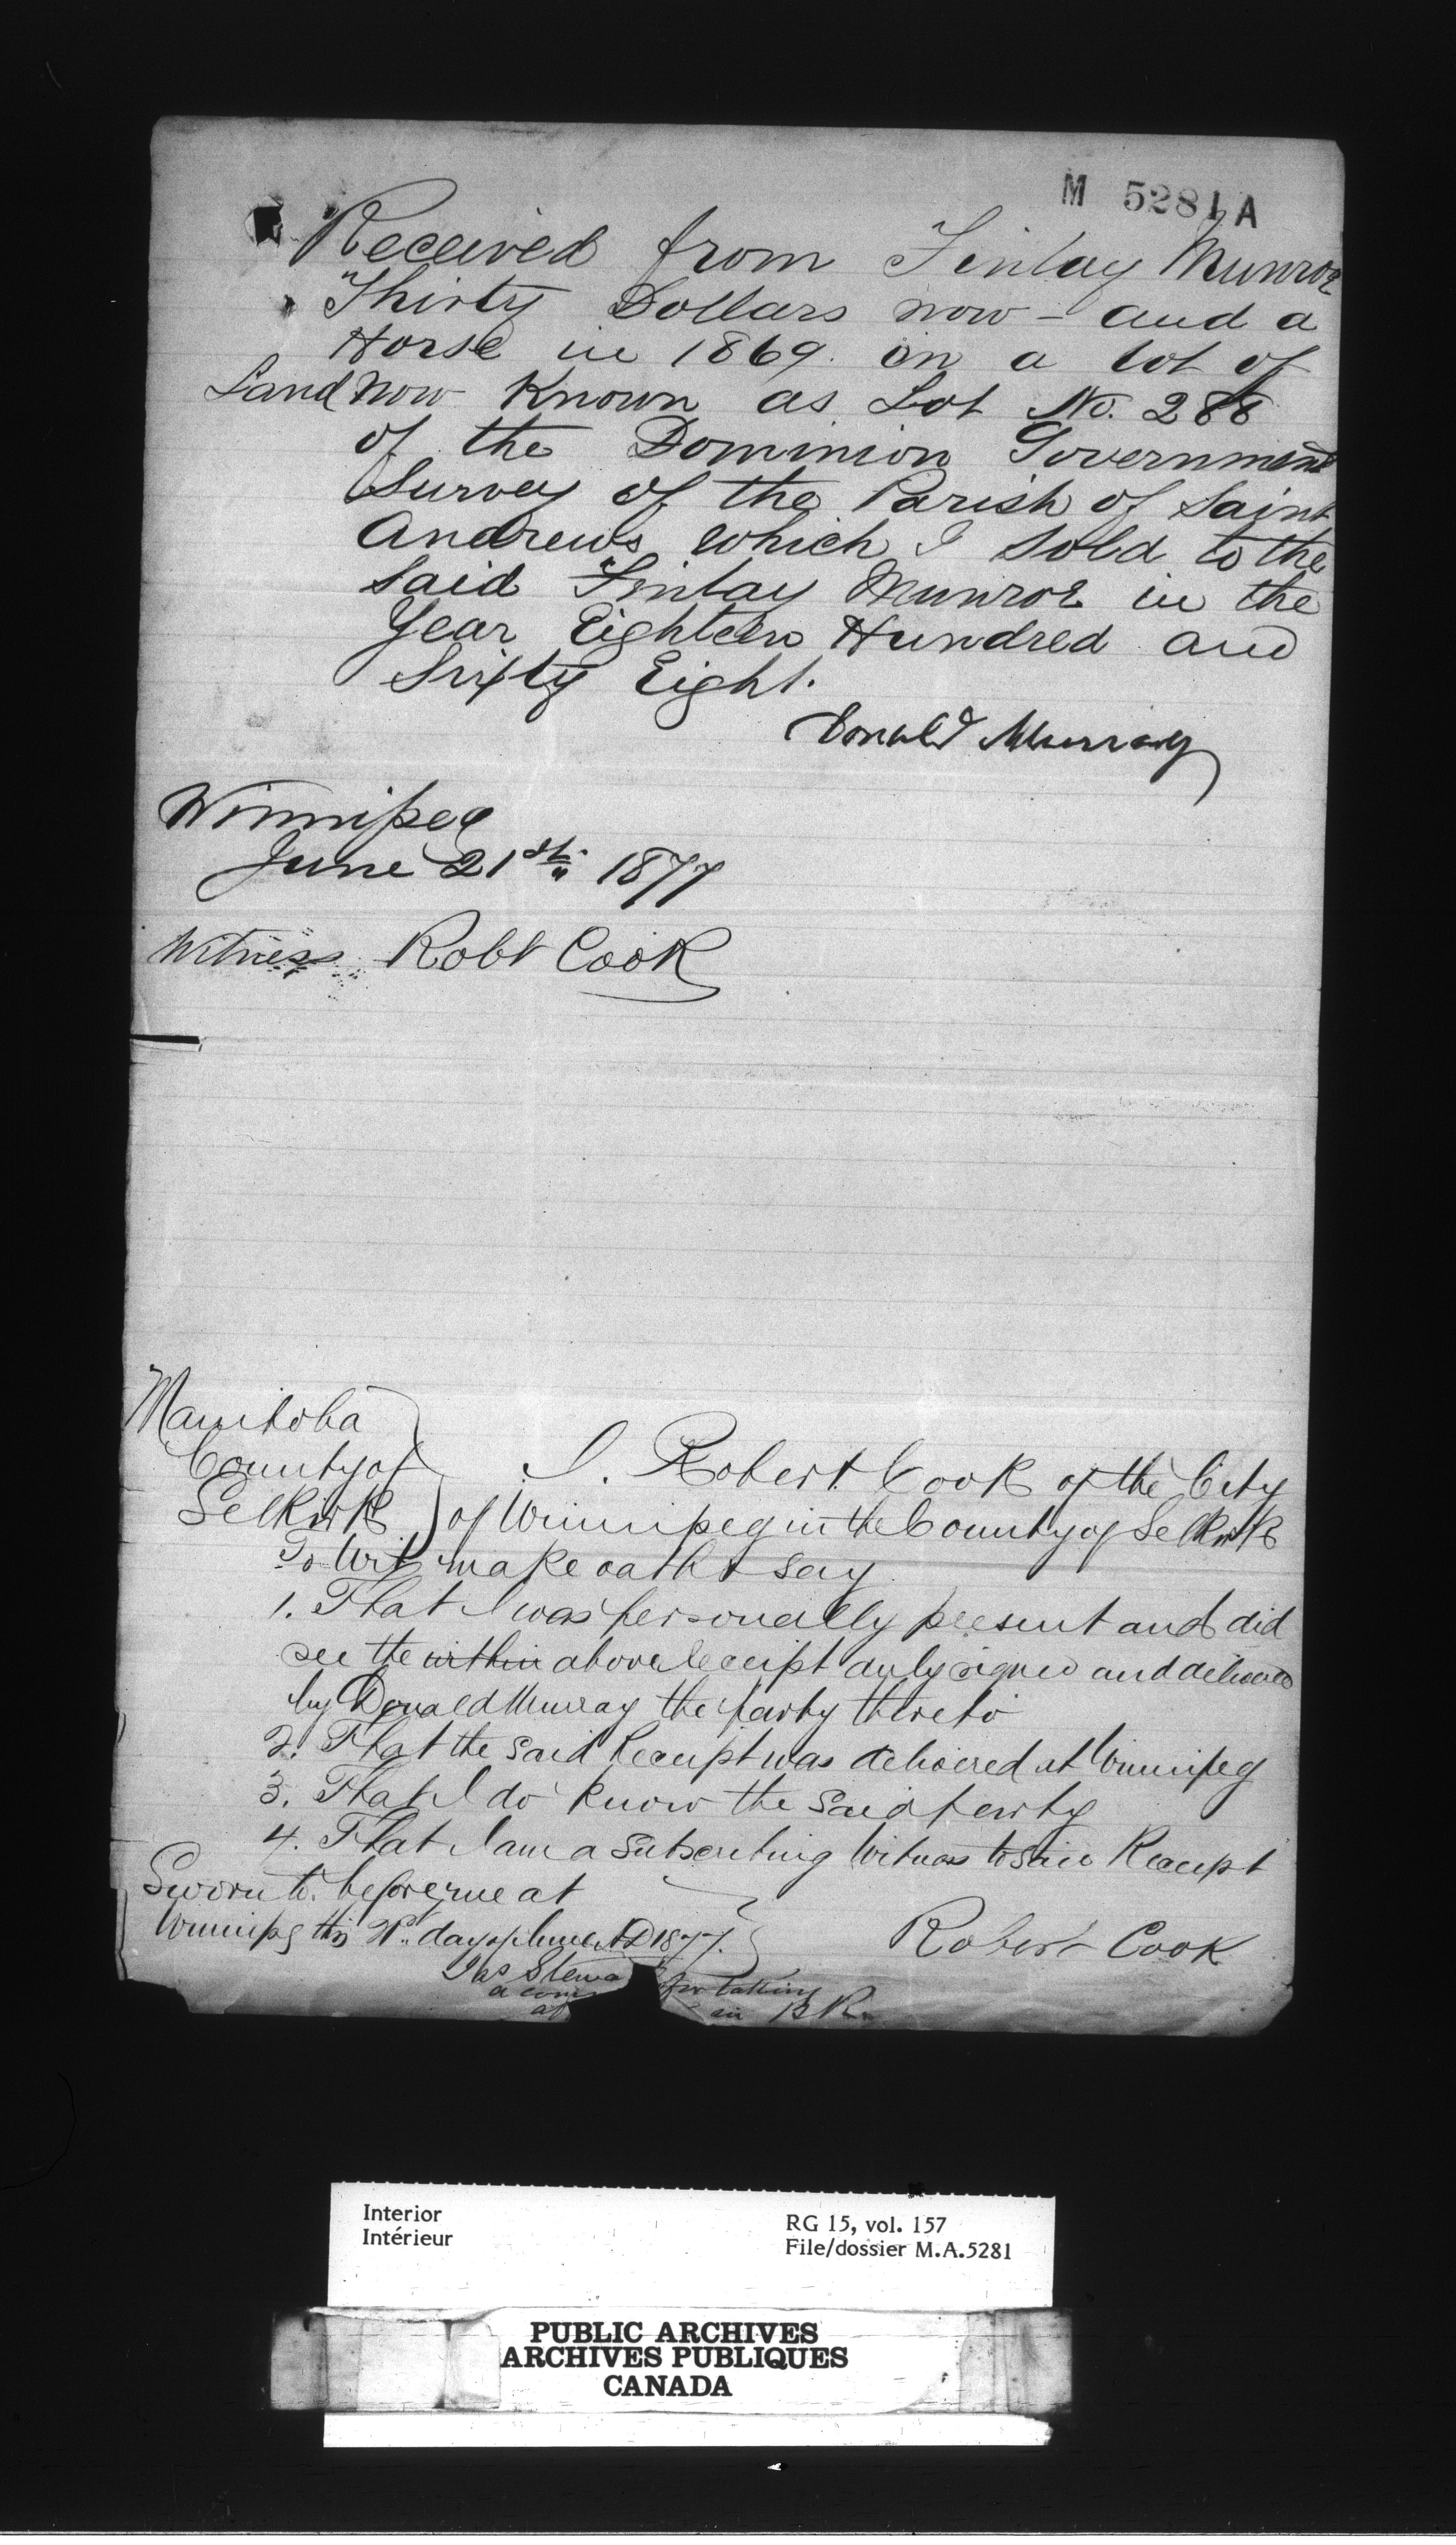 M 5281 A
Received from Finlay Munroe
Thirty Dollars now - and a
Horse in 1869. on a lot of
Land now Known as Lot No. 288
of the Dominion Government
Survey of the Parish of Saint
Andrews which I sold to the
said Finlay Munroe in the
Year Eighteen Hundred and
Sixty Eight.
Donald Murray
Winnipeg
June 21st 1877
Witness Robt Cook
Manitoba
County of
Selkirk
To Wit
I. Robert Cook of the City
of Winnipeg in the County of Selkirk
make oath & say
1. That I was personally present and did
see the within above receipt duly signed and delivered
by Donald Murray the party thereto
2. That the said Receipt was delivered at Winnipeg
3. That I do know the said party
4. That I am a subscribing Witness to said Receipt
Sworn to before me at
Winnipeg this day of June AD 1877.
Robert Cook
Jas Stewa
a com for taking
af in B R
Interior
Intérieur
RG 15, vol. 157
File/dossier M.A.5281
PUBLIC ARCHIVES
ARCHIVES PUBLIQUES
CANADA